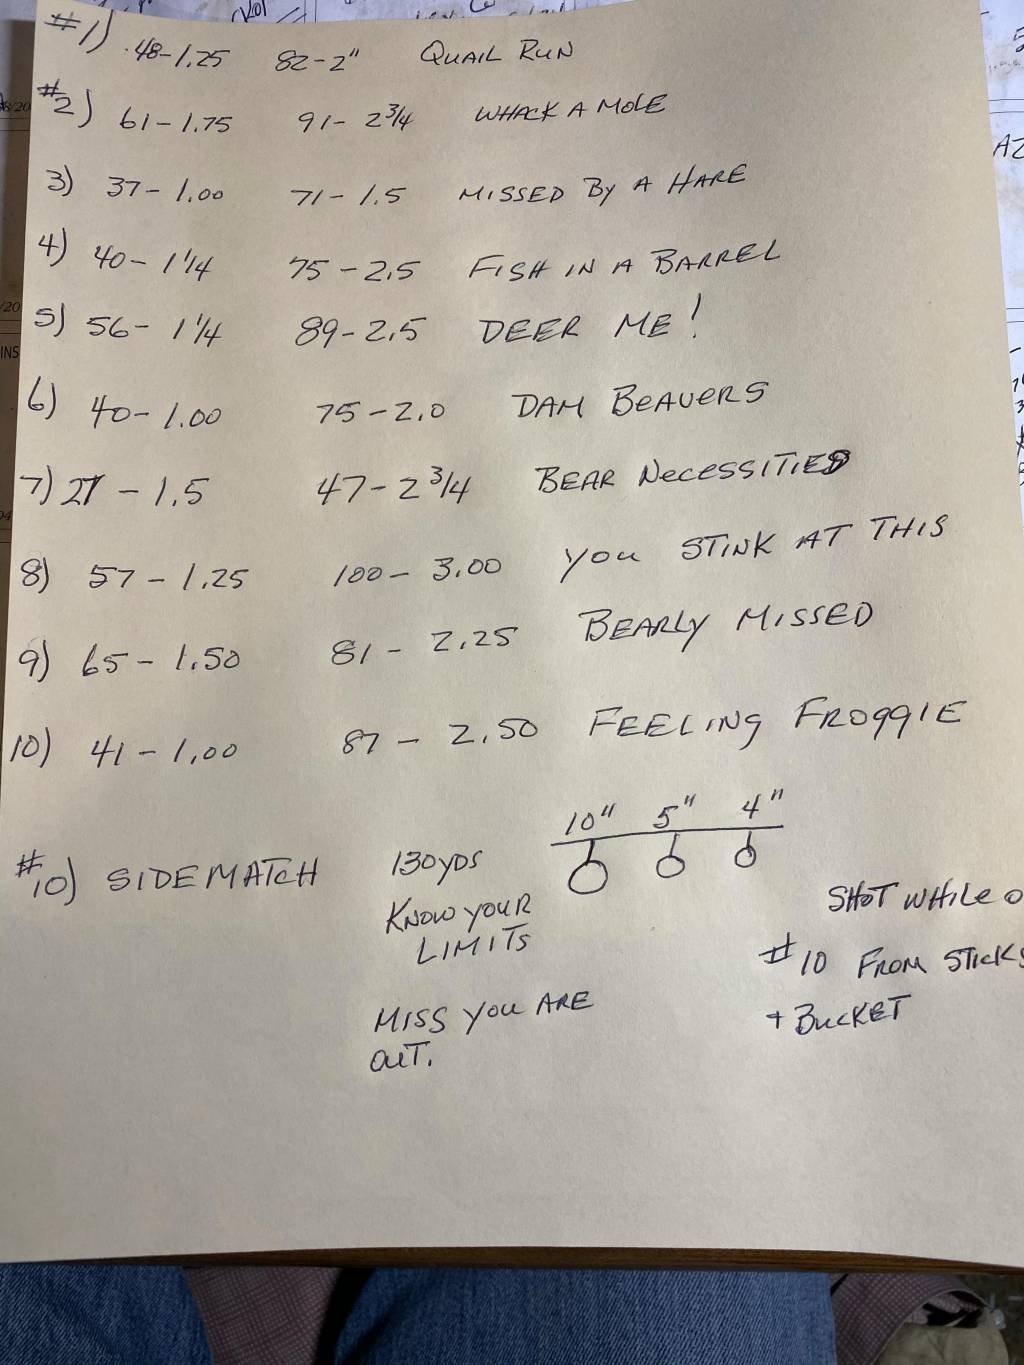 #1) 48-1.25 82-2" QUAIL RUN
#2) 61-1.75 91-2 3/4 WHACK A MOLE
3) 37-1.00 71-1.5 MISSED By A HARE
4) 40-1 1/4 75-2.5 FISH IN A BARREL
5) 56-1 1/4 89-2.5 DEER ME!
6) 40-1.00 75-2.0 DAM BEAVERS
7) 27-1.5 47-2 3/4 BEAR NECESSITIES
8) 57-1.25 100-3.00 you STINK AT THIS
9) 65-1.50 81-2.25 BEARLY MISSED
10) 41-1.00 87-2.50 FEELING FROGGIE
10" 5" 4"
#10) SIDE MATCH 130 yDS
KNOW YOUR
LIMITS
MISS you ARE
OUT.
SHOT WHILE
#10 FROM STICKS
+ BUCKET